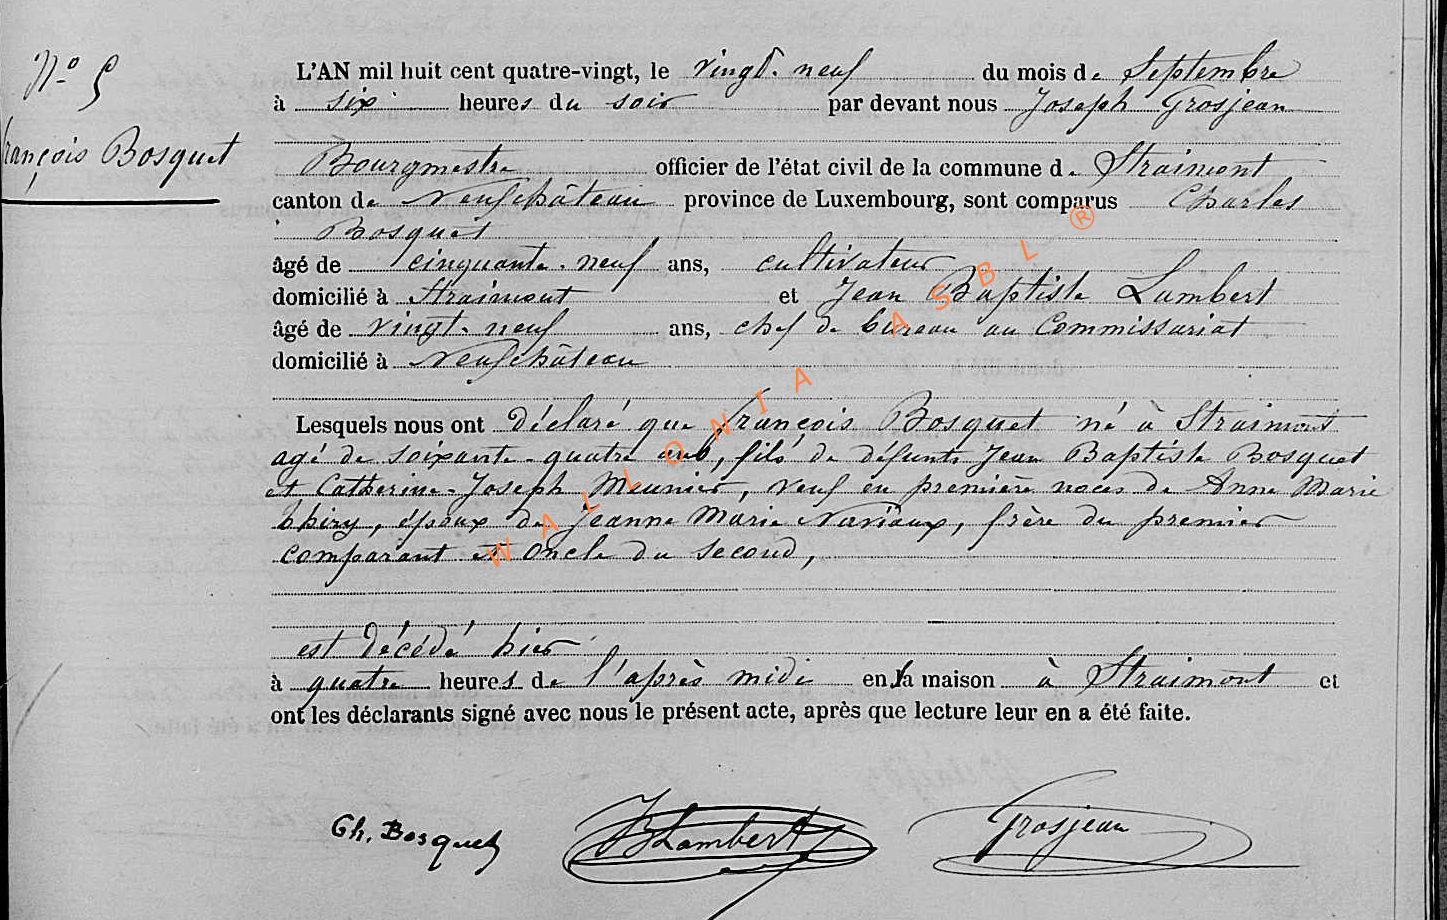 N° 5
François Bosquet
L'AN mil huit cent quatre-vingt, le vingt-neuf du mois de Septembre
à six heures du soir par devant nous Joseph Grosjean
Bourgmestre officier de l'état civil de la commune de Straimont
canton de Neufchâteau province de Luxembourg, sont comparus Charles
Bosquet
âgé de cinquante-neuf ans, cultivateur
domicilié à Straimont et Jean Baptiste Lambert
âgé de vingt-neuf ans, chef de bureau au Commissariat
domicilié à Neufchâteau
Lesquels nous ont déclaré que François Bosquet né à Straimont
agé de soixante-quatre ans, fils de défunts Jean Baptiste Bosquet
et Catherine-Joseph Meunier, veuf en première noces de Anne Marie
thiry, époux de Jeanne Marie Naviaux, frère du premier
comparant et oncle du second,
est décédé hier
à quatre heures de l'après midi en la maison à Straimont et
ont les déclarants signé avec nous le présent acte, après que lecture leur en a été faite.
Ch. Bosquet JBLambert Grosjean
WALLONIA ASBL ®